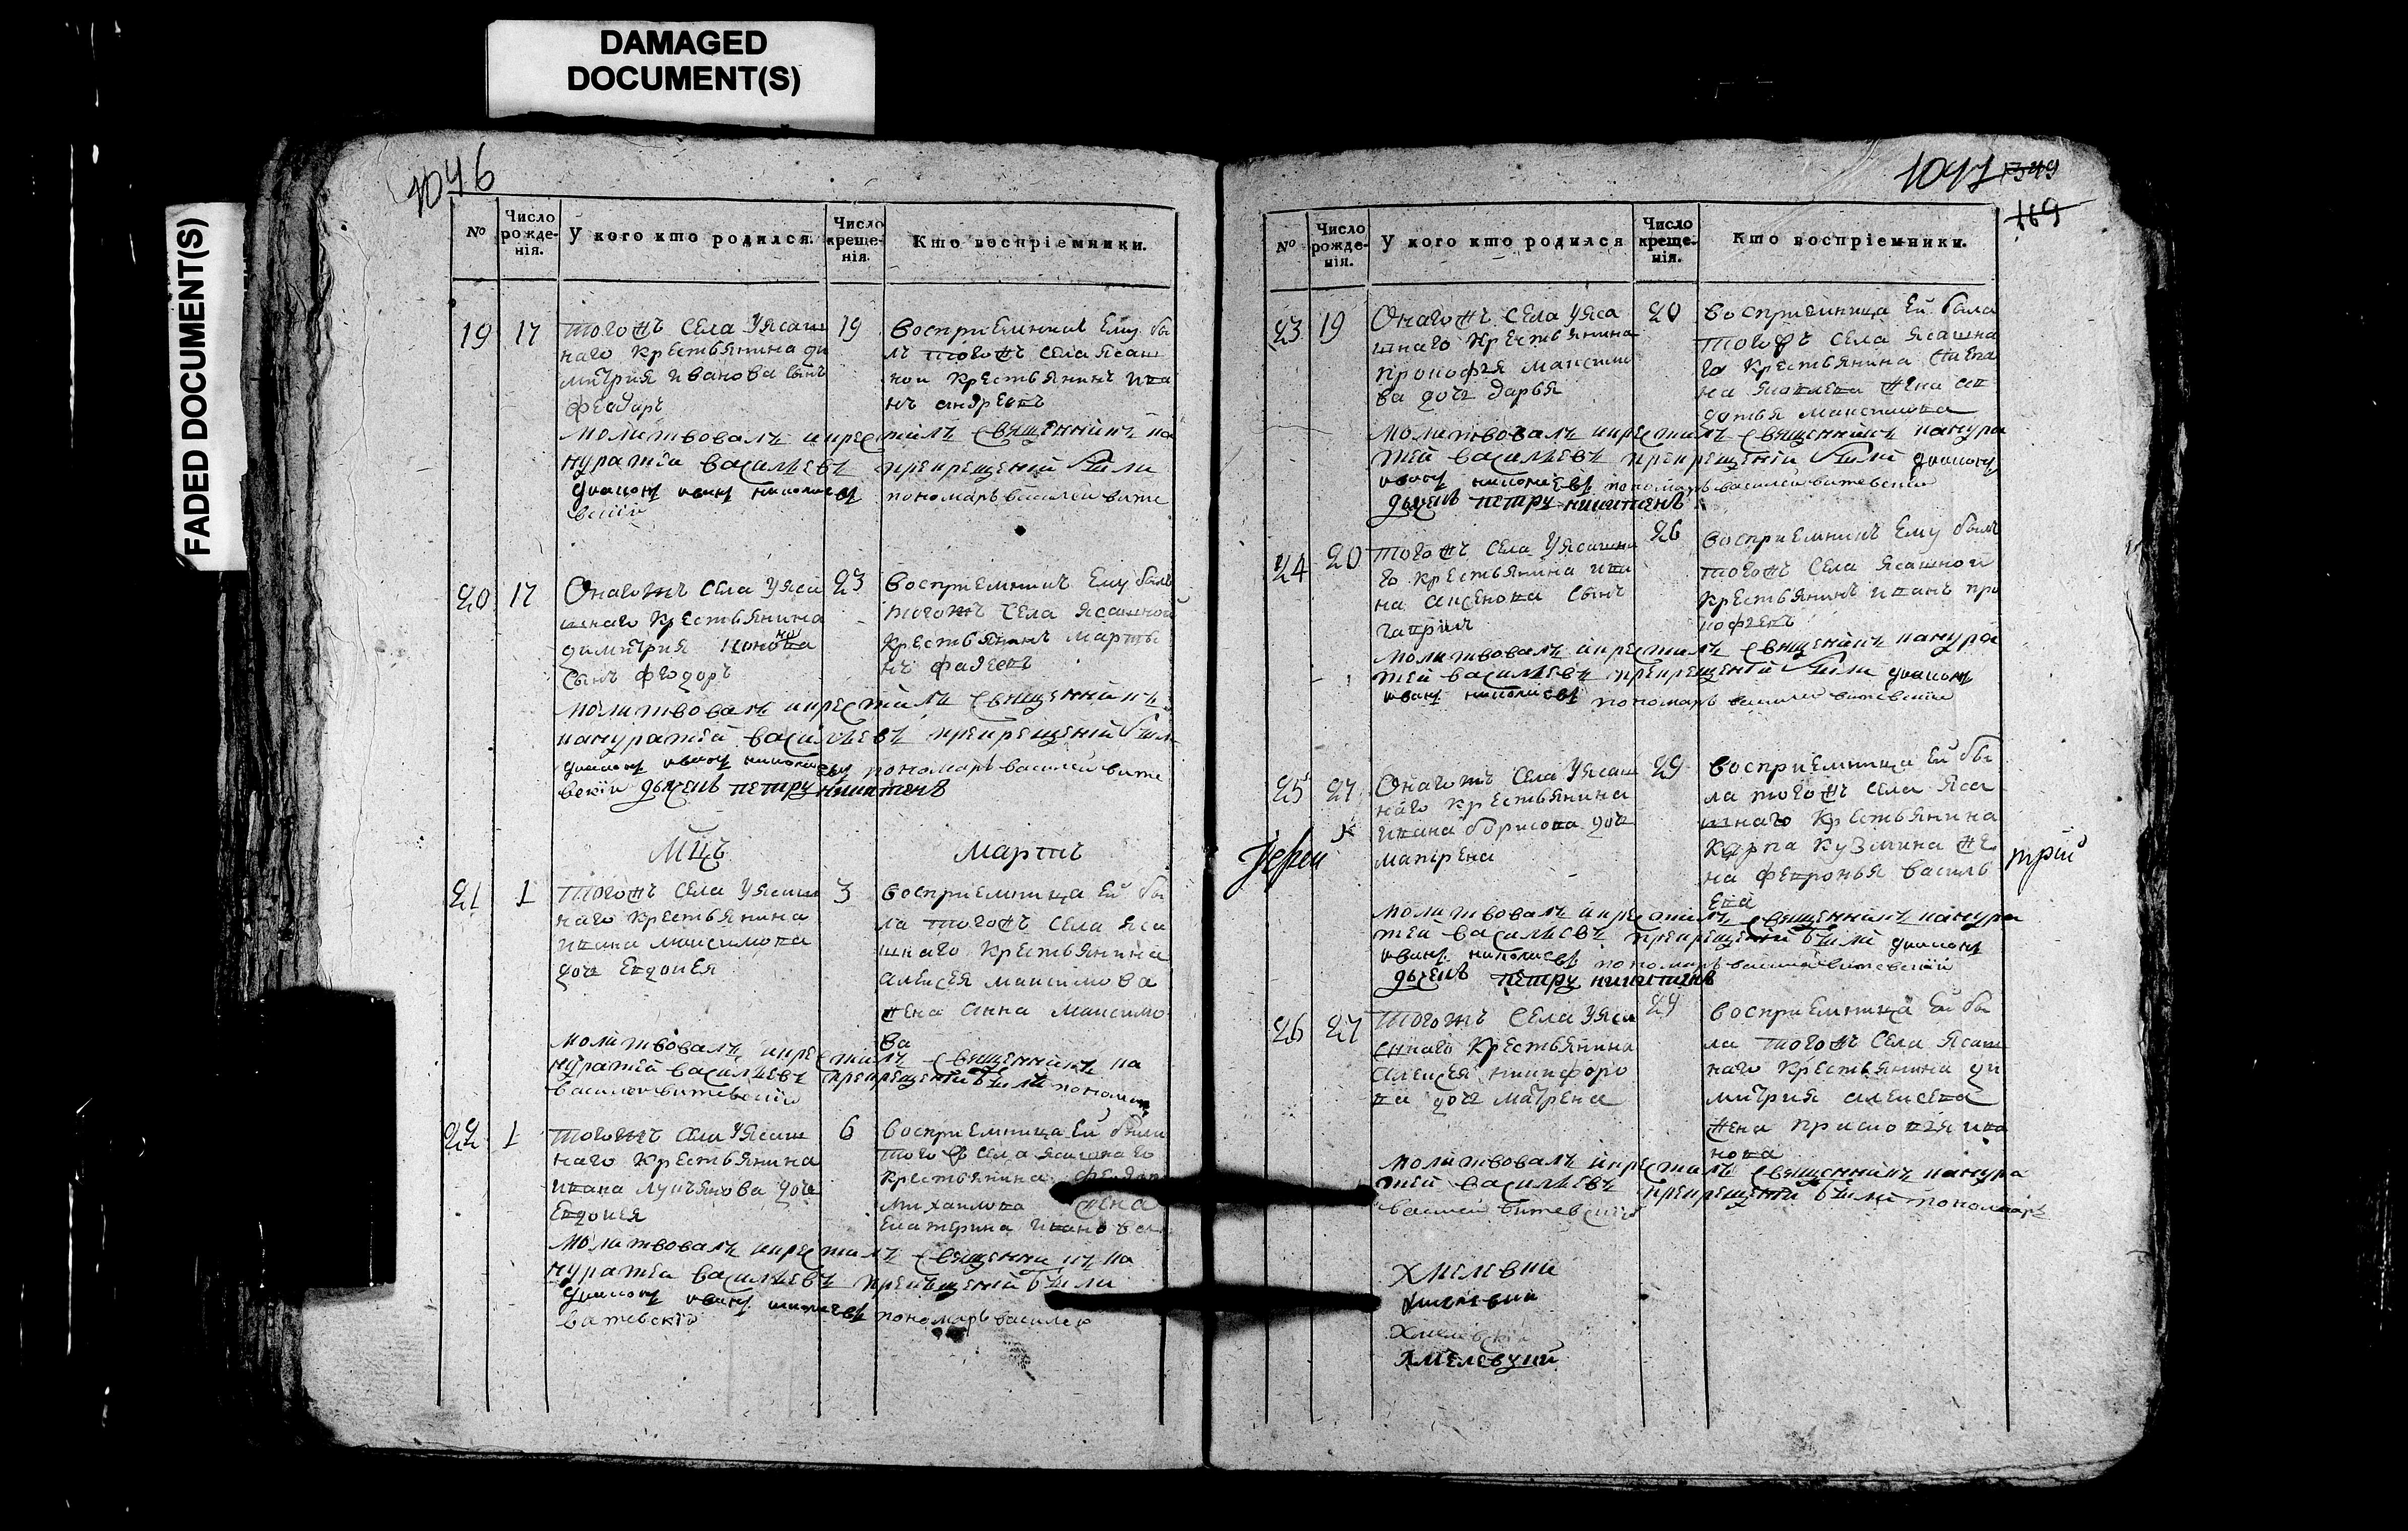 DAMAGED
DOCUMENT(S)
FADED DOCUMENT(S)
1046
№
Число рожде-нія.
У кого кто родился.
Число креще-нія.
Кто воспріемники.
19 17
тогожъ села Уясаш
наго крестьянина ди
митрия иванова сынъ
феодоръ
19
восприемникъ ему бы
лъ тогожъ села ясаш
ной крестьянинъ ива
нъ андреевъ
молитвовалъ и крестилъ священникъ па
нкратей васильевъ при крещении были
диаконъ иванъ николаевъ пономарь василей вите
вский
20 17
Онагожъ села Уяса
шнаго крестьянина
димитрия
сынъ феодоръ
23
восприемникъ ему былъ
тогожъ села ясашной
крестьянинъ марты
нъ фадеевъ
молитвовалъ и крестилъ священникъ
панкратей васильевъ при крещении были
диаконъ иванъ николаевъ пономарь василей вите
вский дьячекъ петръ никитинъ
Мцъ Мартъ
21 1
тогожъ села Уясаш
наго крестьянина
ивана максимова
дочь Евдокея
3
восприемница ей бы
ла тогожъ села яса
шнаго крестьянина
алексея максимова
жена анна максимо
ва
молитвовалъ и крестилъ священникъ па
нкратей васильевъ при крещении были пономарь
василей витевский
22 1
тогожъ села Уясаш
наго крестьянина
ивана лукъянова дочь
Евдокея
6
восприемница ей были
тогожъ села ясашнаго
крестьянина
михаилова жена
екатерина иванова
молитвовалъ и крестилъ священникъ па
нкратей васильевъ при крещений были
диаконъ иванъ николаевъ пономарь василей
витевский
1047 1349
169
№
Число рожде-нія.
У кого кто родился
Число креще-нія.
Кто воспріемники.
23 19
Онагожъ села Уяса
шнаго крестьянина
прокофья максимо
ва дочь дарья
20
восприемница ей была
тогожъ села ясашна
го крестьянина
на яковлева жена ав
дотья максимова
молитвовалъ и крестилъ священникъ панкра
тей васильевъ при крещении были диаконъ
иванъ николаевъ пономарь василей витевский
дьячекъ петръ никитинъ
24 20
тогожъ села Уясашна
го крестьянина ива
на аксенова сынъ
гаврилъ
26
восприемникъ ему былъ
тогожъ села ясашной
крестьянинъ иванъ про
кофьевъ
молитвовалъ и крестилъ священникъ панкра
тей васильевъ при крещении были диаконъ
иванъ николаевъ пономарь василей витевский
25 27
Онагожъ села Уясаш
наго крестьянина
ивана борисова дочь
матрена
29
восприемница ей бы
ла тогожъ села яса
шнаго крестьянина
карпа кузмина же
на февронья василь
ева
молитвовалъ и крестилъ священникъ панкра
тей васильевъ при крещении были диаконъ
иванъ николаевъ пономарь василей витевский
дьячекъ петръ никитинъ
26 27
тогожъ села Уяса
шнаго крестьянина
алексея никифоро
ва дочь матрена
29
восприемница ей бы
ла тогожъ села ясаш
наго крестьянина ди
митрия алексева
жена прасковья ива
нова
молитвовалъ и крестилъ священникъ панкра
тей васильевъ при крещении были пономарь
василей витевский
хмелевкий
хмелевкий
Хмелевский
хмелевцкий